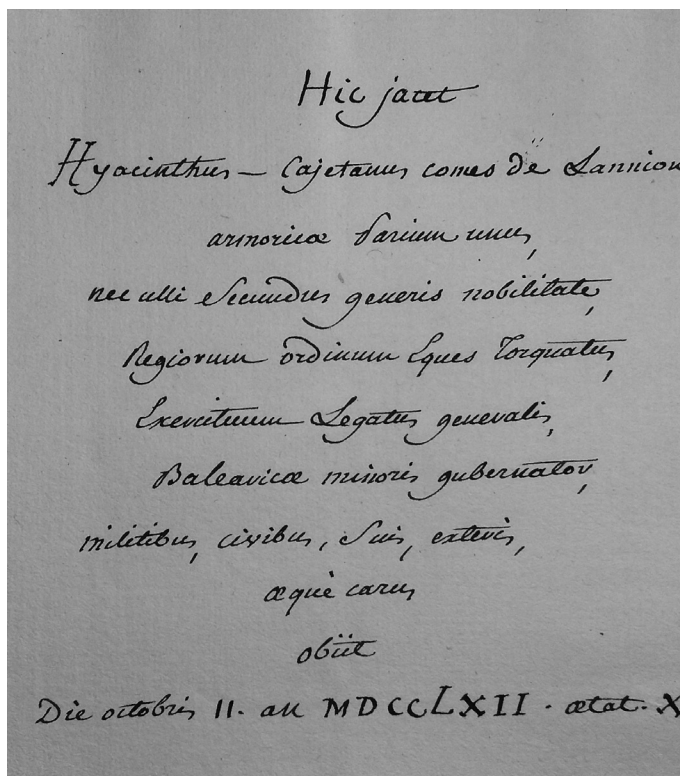 Hic jacet
Hyacinthus – Cajetanus comes de Lannion
armoricæ Parium unus,
nec ulli Secundus generis nobilitate,
Regiorum ordinum Eques Torquatus,
Exercituum Legatus generalis,
Balearicæ minoris gubernator,
militibus, civibus, Suis, exteris,
æquè carus
obiit
Die octobris II. an MDCCLXII . ætat. X